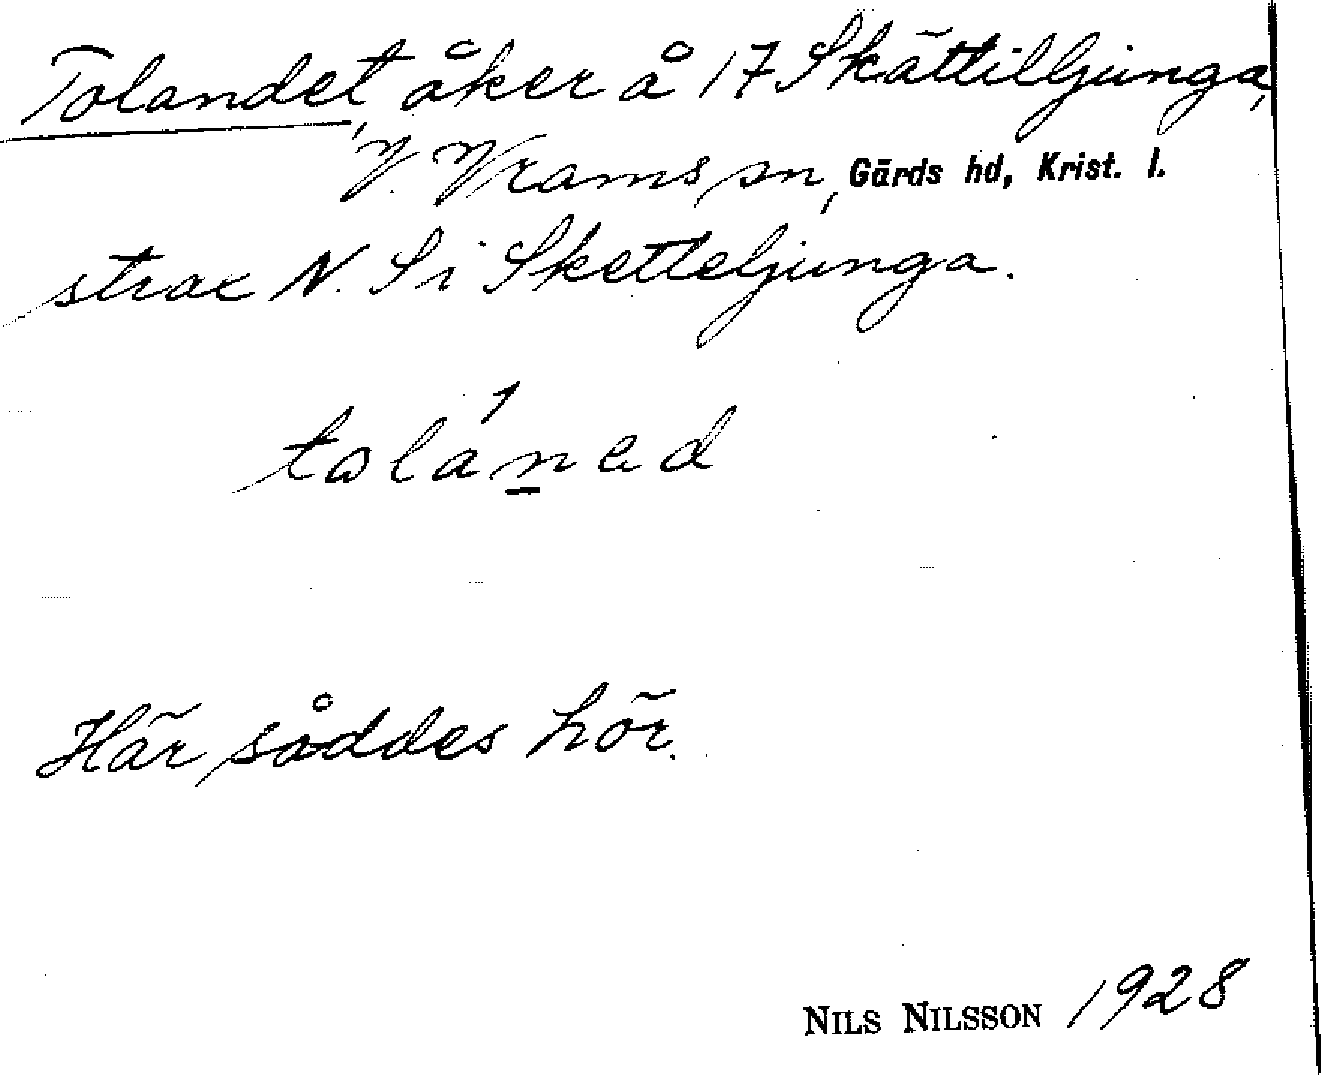 Tolandet, åker å 17 Skättilljunga,
V. Vrams sn, Gärds hd, Krist. l.
strax N. i Sketteljunga.
Här såddes hör.
NILS NILSSON 1928